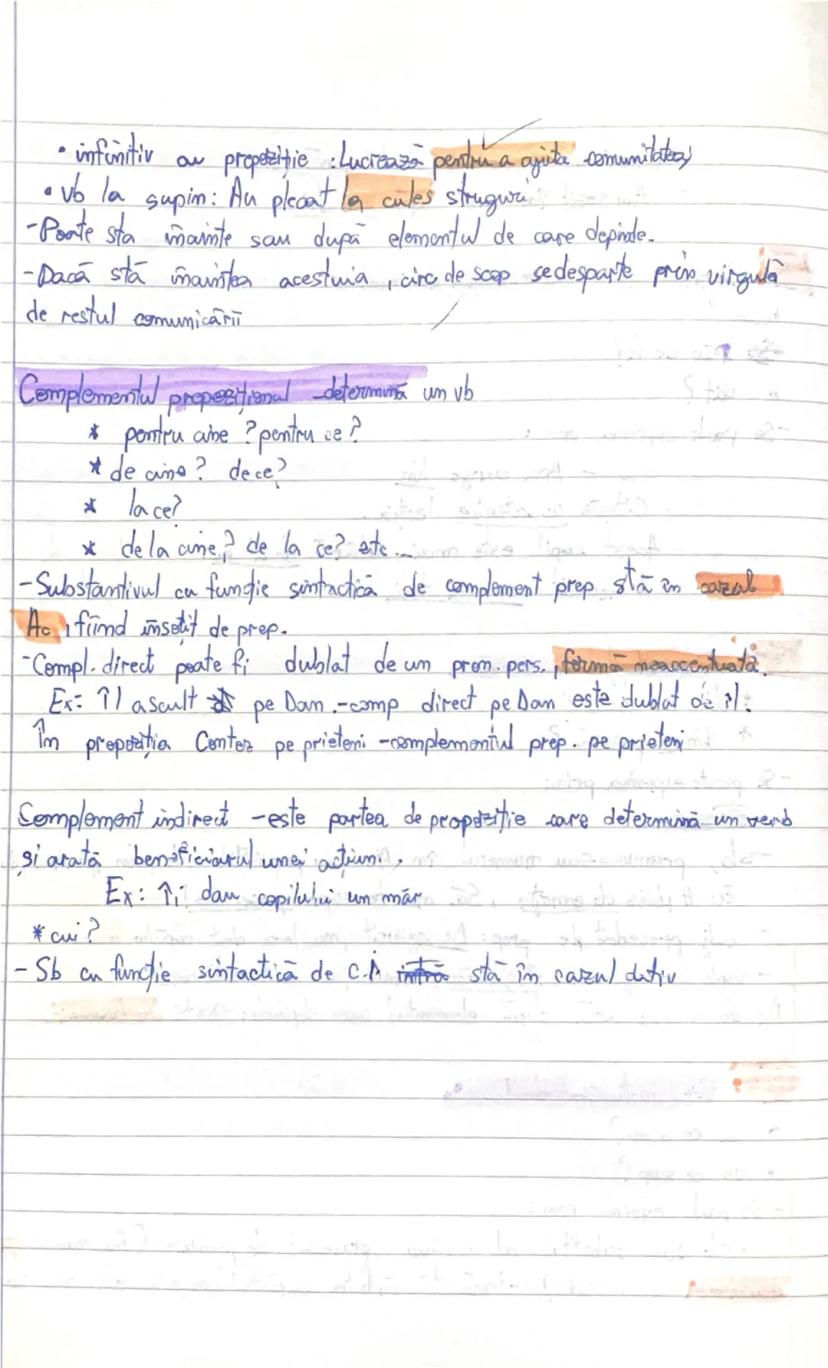 • infinitiv cu propoziție : Lucrează pentru a ajuta comunitatea
• vb la supin: Au plecat la cules struguri
-Poate sta înainte sau după elementul de care depinde.
-Dacă stă înaintea acestuia, circ de scop se desparte prin virgulă
de restul comunicării
Complementul prepozițional -determină un vb
* pentru cine ? pentru ce ?
* de cine ? de ce?
* la ce?
* de la cine? de la ce? etc...
-Substantivul cu funție sintactică de complement prep stă în cazul
Ac, fiind însoțit de prep.
-Compl. direct poate fi dublat de un pron. pers., formă neaccentuată.
Ex: Îl ascult pe Dan .-comp direct pe Dan este dublat de îl.
În propoziția Contez pe prieteni -complementul prep. pe prieteni
Complement indirect -este partea de propoziție care determină un verb
și arată beneficiarul unei acțiuni.
Ex: Îi dau copilului un măr
* cui ?
- Sb cu funție sintactică de C.i intră stă în cazul dativ